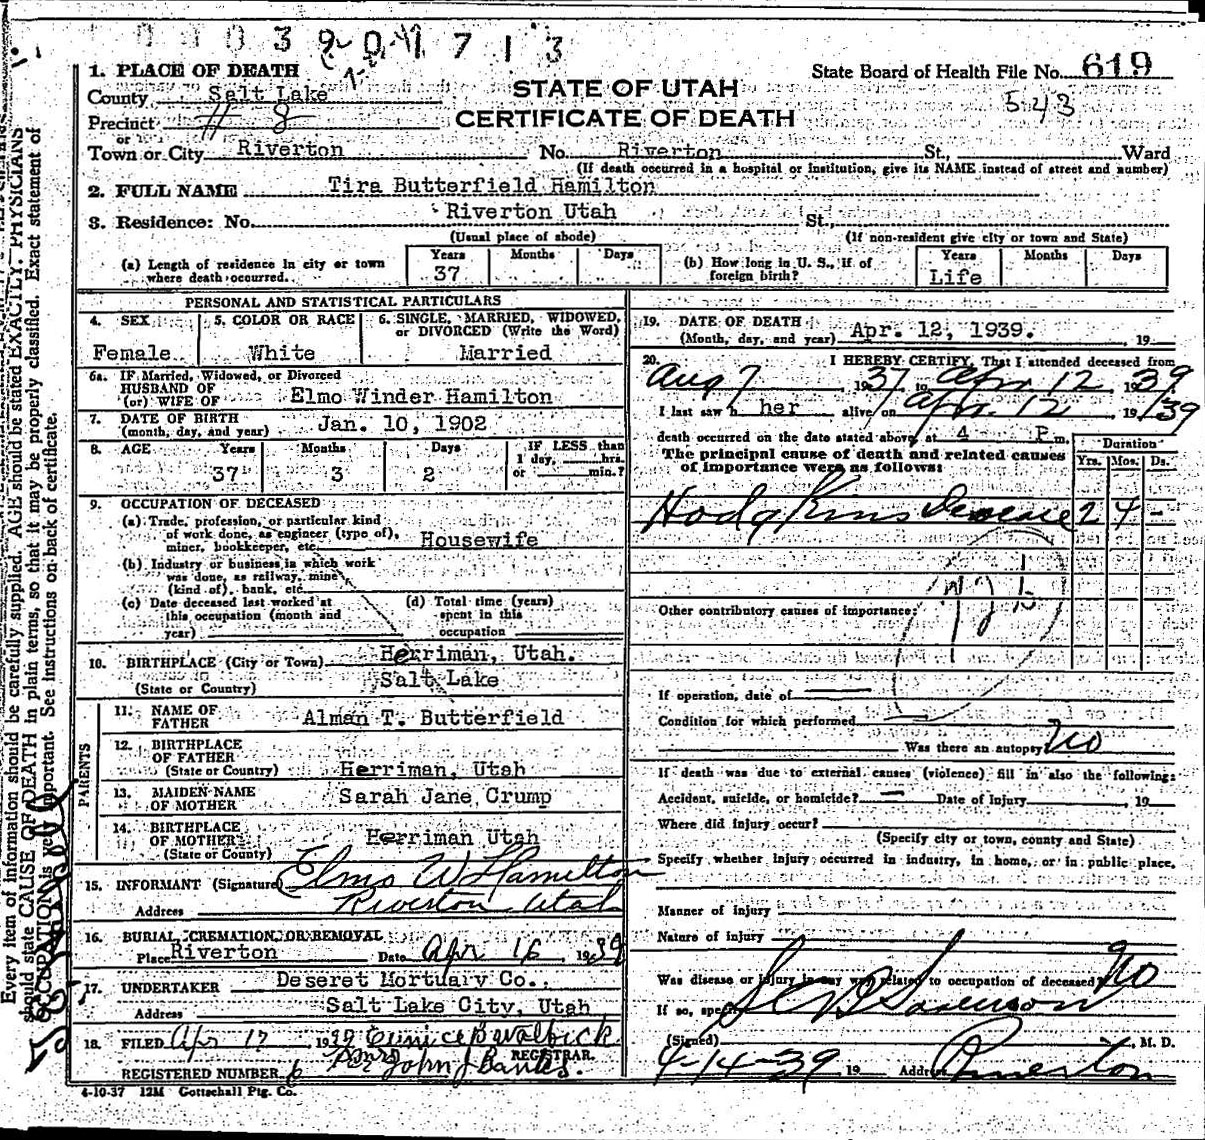 1. PLACE OF DEATH
County Salt Lake
Precinct # 8
or
Town or City Riverton No. Riverton St., Ward
(If death occurred in a hospital or institution, give its NAME instead of street and number)
STATE OF UTAH
CERTIFICATE OF DEATH
State Board of Health File No. 619
543
2. FULL NAME Tira Butterfield Hamilton
3. Residence: No. Riverton Utah St.,
(Usual place of abode) (If non-resident give city or town and State)
(a) Length of residence in city or town where death occurred. Years 37 Months Days
(b) How long in U. S., if of foreign birth? Years Life Months Days
PERSONAL AND STATISTICAL PARTICULARS
4. SEX Female
5. COLOR OR RACE White
6. SINGLE, MARRIED, WIDOWED, or DIVORCED (Write the Word) Married
6a. IF Married, Widowed, or Divorced
HUSBAND OF
(or) WIFE OF Elmo Winder Hamilton
7. DATE OF BIRTH
(month, day, and year) Jan. 10, 1902
8. AGE Years 37 Months 3 Days 2 IF LESS than 1 day, hrs. or min.?
9. OCCUPATION OF DECEASED
(a) Trade, profession, or particular kind
of work done, as engineer (type of),
miner, bookkeeper, etc. Housewife
(b) Industry or business in which work
was done, as railway, mine
(kind of), bank, etc.
(c) Date deceased last worked at
this occupation (month and
year)
(d) Total time (years)
spent in this
occupation
10. BIRTHPLACE (City or Town) Herriman, Utah.
(State or Country) Salt Lake
PARENTS
11. NAME OF
FATHER Alman T. Butterfield
12. BIRTHPLACE
OF FATHER
(State or Country) Herriman, Utah
13. MAIDEN NAME
OF MOTHER Sarah Jane Crump
14. BIRTHPLACE
OF MOTHER
(State or Country) Herriman Utah
15. INFORMANT (Signature) Elmo W Hamilton
Address Riverton Utah
16. BURIAL, CREMATION, OR REMOVAL
Place Riverton Date Apr 16, 1939
17. UNDERTAKER Deseret Mortuary Co.,
Address Salt Lake City, Utah
18. FILED Apr 17 1939
REGISTRAR.
John J Banks.
REGISTERED NUMBER 6
4-10-37 12M Gottschall Ptg. Co.
19. DATE OF DEATH
(Month, day, and year) Apr. 12, 1939. , 19
20. I HEREBY CERTIFY, That I attended deceased from
Aug 7 1937 to Apr 12 1939
I last saw h her alive on Apr. 12 1939
death occurred on the date stated above, at 4 P m.
The principal cause of death and related causes
of importance were as follows:
Duration
Yrs. Mos. Ds.
Hodgkins Disease 2 4 -
Other contributory causes of importance:
If operation, date of
Condition for which performed
Was there an autopsy No
If death was due to external causes (violence) fill in also the following:
Accident, suicide, or homicide? Date of injury , 19
Where did injury occur?
(Specify city or town, county and State)
Specify whether injury occurred in industry, in home, or in public place.
Manner of injury
Nature of injury
Was disease or injury in any way related to occupation of deceased? No
If so, specify
(Signed) Sorenson , M. D.
4-14-39 19 Address Riverton
Every item of information should be carefully supplied. AGE should be stated EXACTLY. PHYSICIANS
should state CAUSE OF DEATH in plain terms, so that it may be properly classified. Exact statement of
OCCUPATION is very important. See instructions on back of certificate.